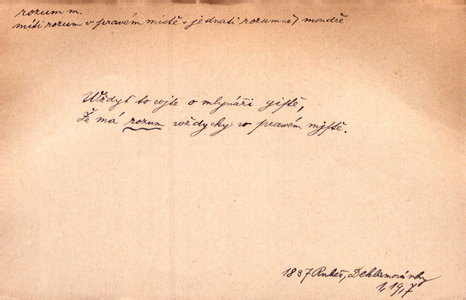 rozum m.
míti rozum v pravém místě = jednati rozumně, moudře
Wždyť to wjte o mlynáři gistě,
Že má rozum wždycky w prawém mjstě.
1837 Rubeš, Deklamovánky
1, 19, 7